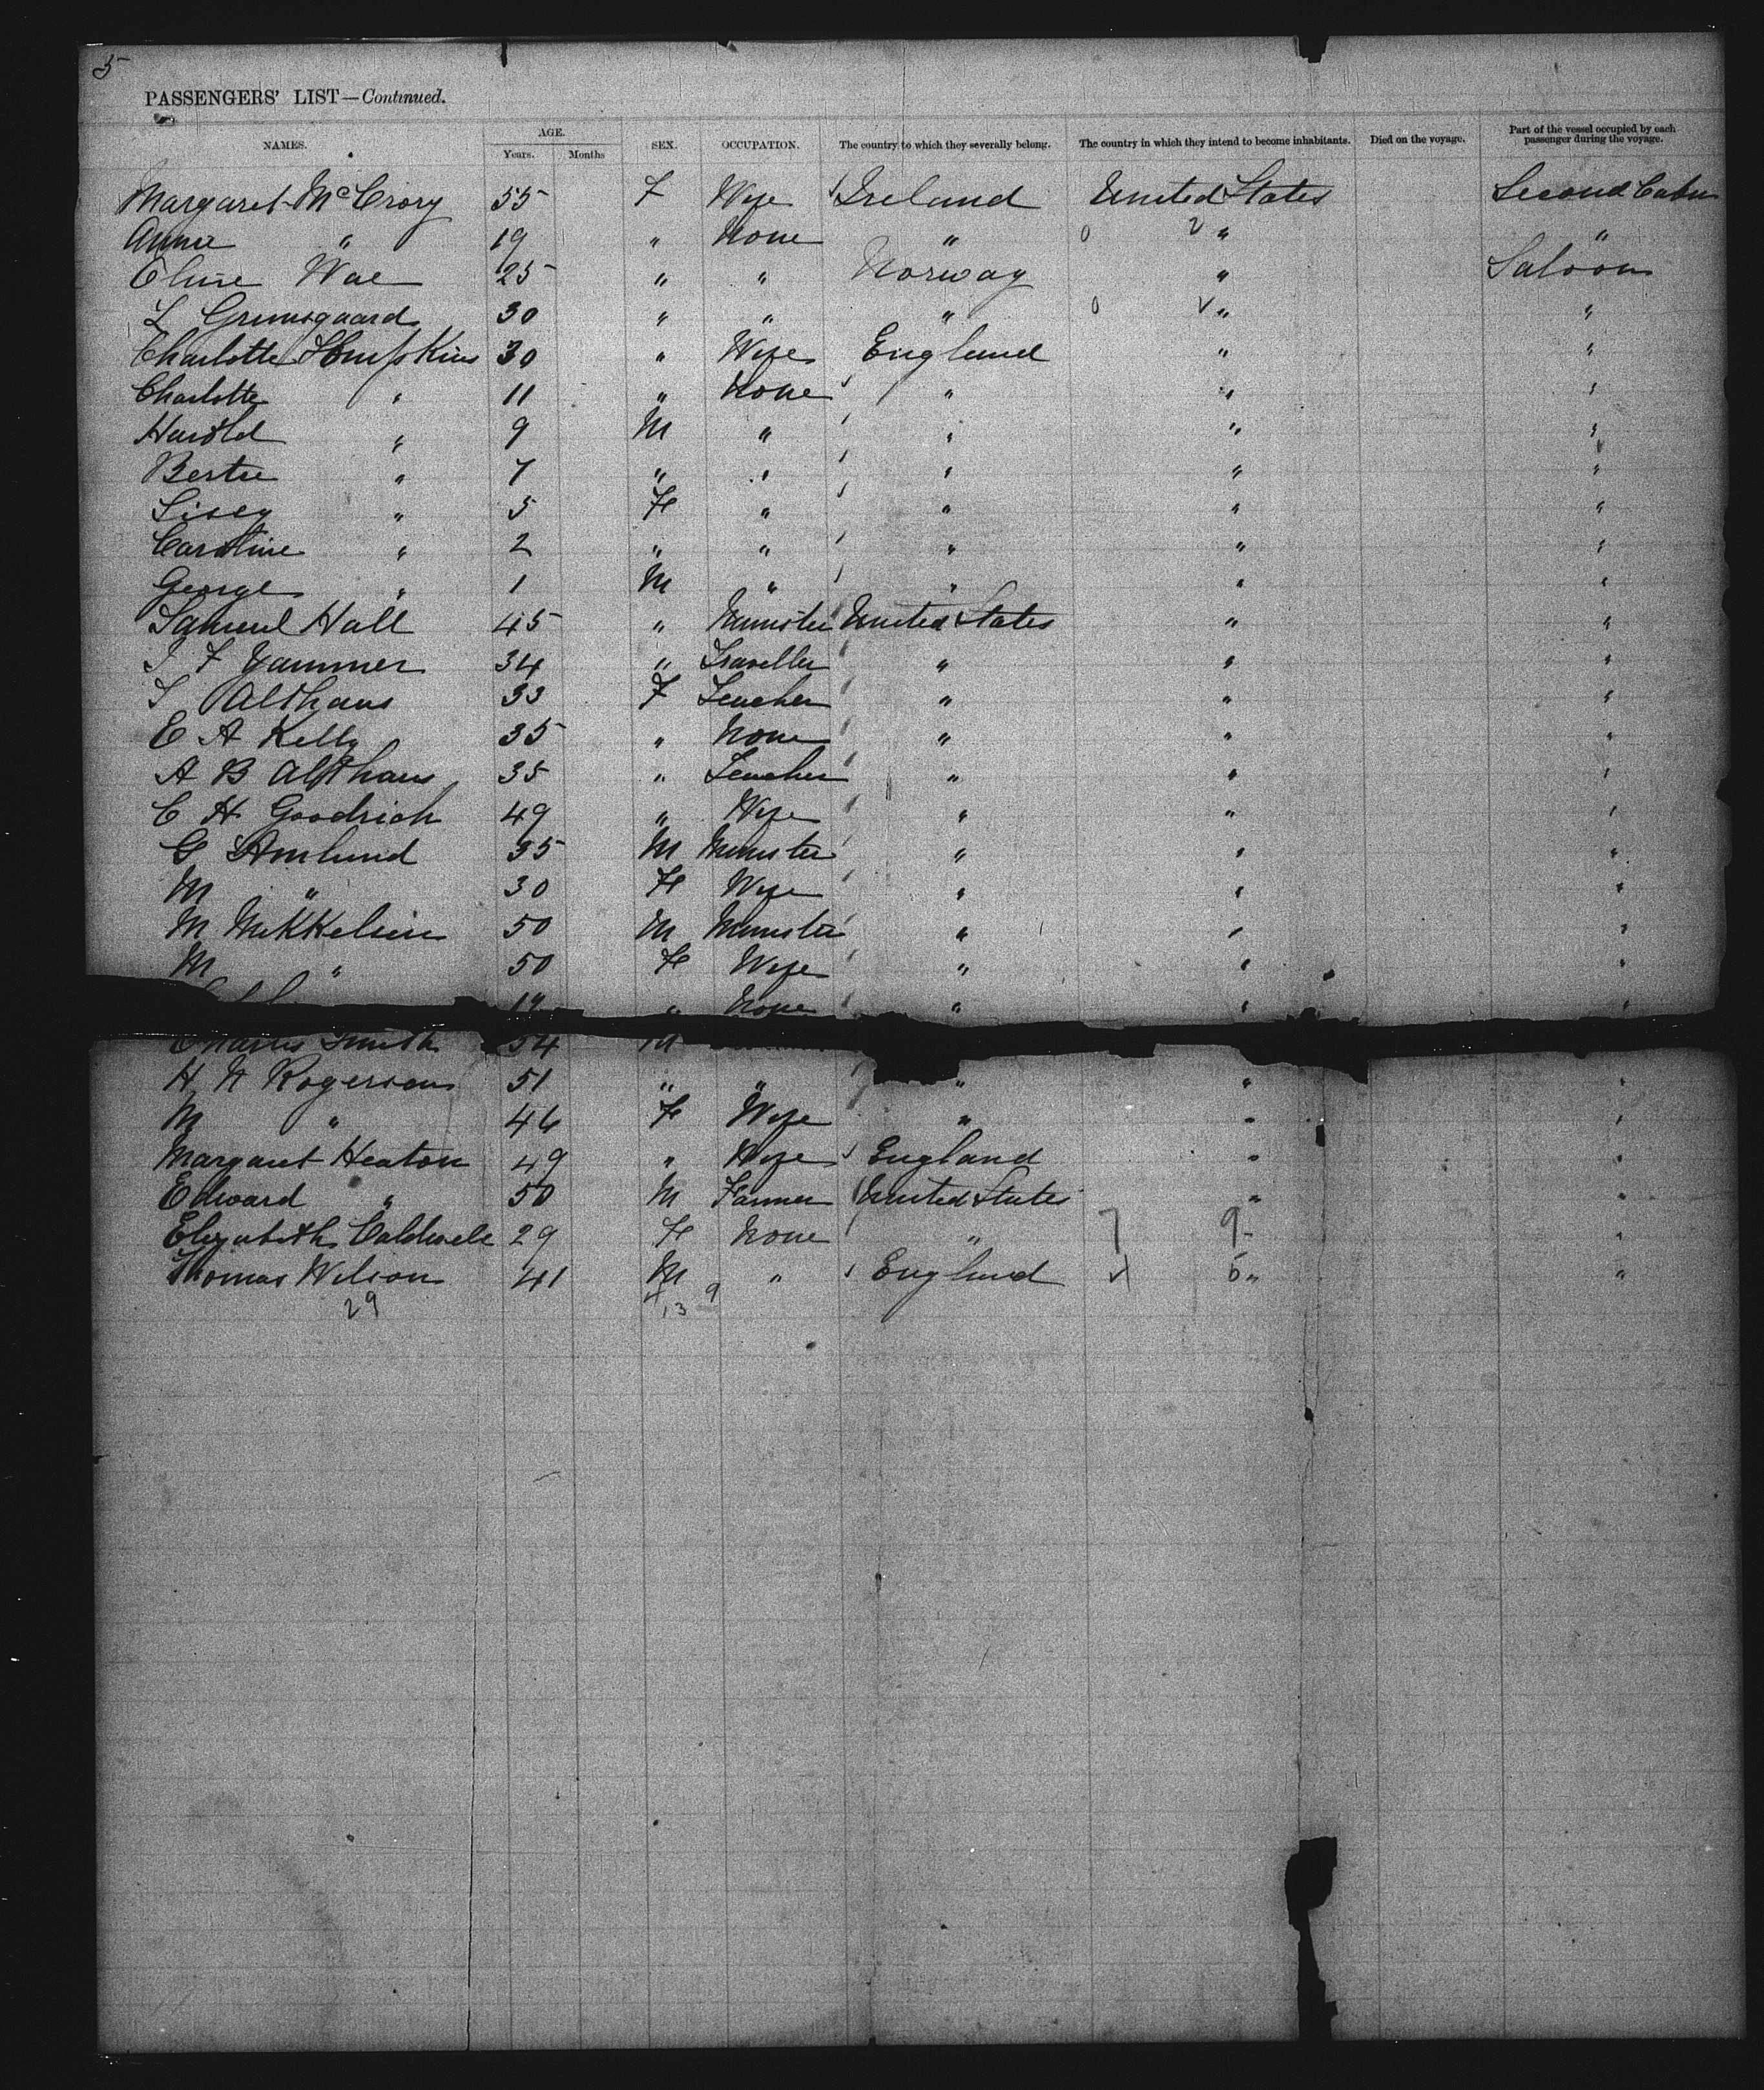 5
PASSENGERS' LIST—Continued.
NAMES. AGE. Years. Months SEX. OCCUPATION. The country to which they severally belong. The country in which they intend to become inhabitants. Died on the voyage. Part of the vessel occupied by each passenger during the voyage.
Margaret McCrory 55 F Wife Ireland United States Second Cabin
Annie " 19 " None " " "
Eline Wae 25 " " Norway " Saloon
L Grunsgaard 30 " " " " "
Charlotte 30 " Wife England " "
Charlotte " 11 " None " " "
Harold " 9 M " " " "
Bertie " 7 " " " " "
" 5 F " " " "
Caroline " 2 " " " " "
George " 1 M " " " "
Samuel Hall 45 " Minister United States " "
F 34 " Traveller " " "
Althaus 33 F Teacher " " "
E A Kelly 35 " None " " "
A B Althaus 35 " Teacher " " "
C H Goodrich 49 " Wife " " "
G Amlund 35 M Minister " " "
M " 30 F Wife " " "
M Mikkelsen 50 M Minister " " "
M " 50 F Wife " " "
" None " " "
Charles Smith 54 M
H Rogerson 51 " " " " "
M " 46 F Wife " " "
Margaret Heaton 49 " Wife England " "
Edward " 50 M Farmer United States " "
Elizabeth Caldwell 29 F None " 7 9 "
Thomas Wilson 41 M " England " "
29 13 9